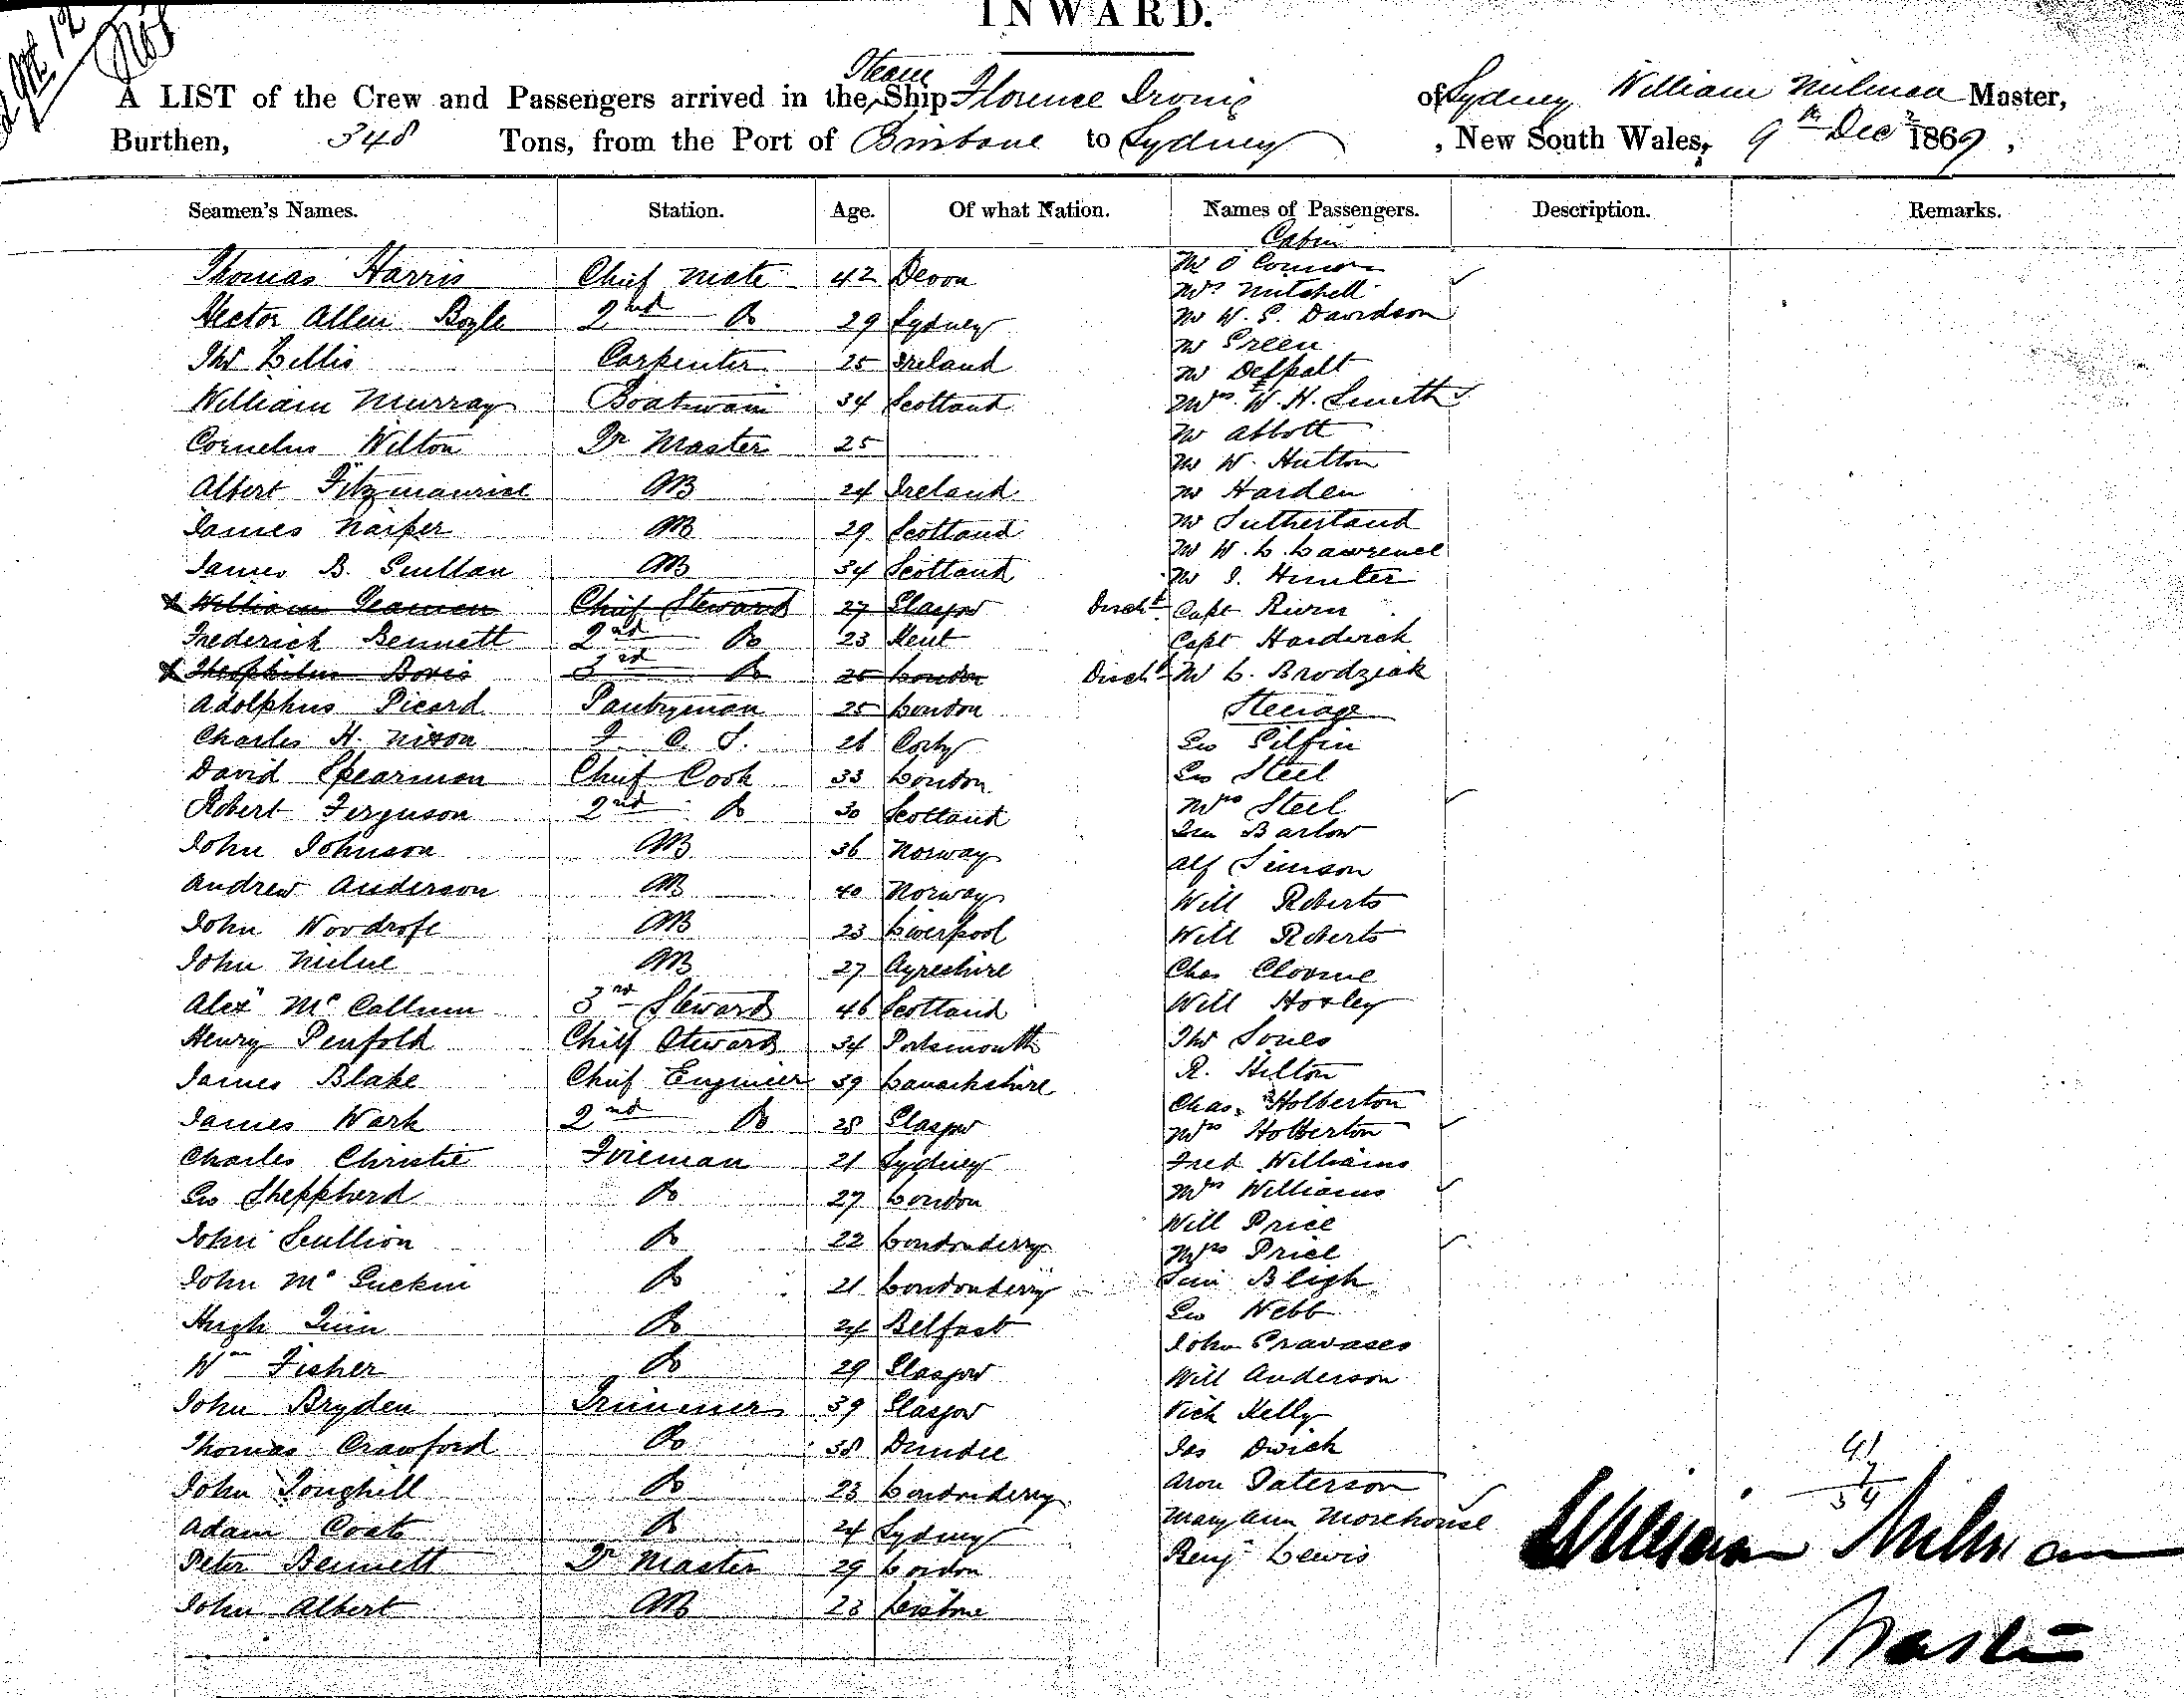 INWARD.
A LIST of the Crew and Passengers arrived in the Steam Ship Florence Irving of Sydney William Milman Master,
Burthen, 348 Tons, from the Port of Brisbane to Sydney, New South Wales, 9th Decr 1869,
Seamen's Names. Station. Age. Of what Nation. Names of Passengers. Description. Remarks.
Cabin
Thomas Harris Chief Mate 42 Devon Mr O'Connor
Mrs Mitchell
Hector Allen Boyle 2nd Do 29 Sydney Mr W. G. Davidson
Mr Green
Thos Lillis Carpenter 25 Ireland
William Murray Boatswain 34 Scotland Mrs W. H. Smith
Cornelus Wilton Qr Master 25 Mr Abbott
Mr W. Hutton
Albert Fitzmaurice AB 24 Ireland Mr Harden
James Napier AB 29 Scotland Mr Sutherland
Mr W. L. Lawrence
James B. AB 34 Scotland Mr J. Hunter
William Chief Steward 27 Glasgow Disch Capt
Frederick Bennett 2nd Do 23 Kent Capt Hardwick
Theophilus 3rd Do 25 London Disch Mr L. Brodziak
Adolphus Picard Pantryman 25 London Steerage
Charles H. Nixon F. C. S. 26 Geo Gilfin
David Spearman Chief Cook 33 London Geo Steel
Robert Ferguson 2nd Do 30 Scotland Mrs Steel
John Johnson AB 36 Norway Barlow
Alf Simson
Andrew Anderson AB 40 Norway Will Roberts
John Woodrofe AB 23 Liverpool Will Roberts
John Milne AB 27 Ayreshire Chas
Alexr McCallum 3rd Steward 46 Scotland Will Hoxley
Henry Penfold Chief Steward 34 Portsmouth Thos Jones
James Blake Chief Engineer 39 Lanarkshire R. Hilton
Chas. Holberton
James Wark 2nd Do 28 Glasgow Mrs Holberton
Charles Christie Fireman 21 Sydney Fred Williams
Geo Sheppherd Do 27 London Mrs Williams
Will Price
John Scullion Do 22 Londonderry Mrs Price
John McGuckin Do 21 Londonderry Bligh
Hugh Quin Do 24 Belfast Geo Webb
John
Wm Fisher Do 29 Glasgow Will Anderson
John Bryden Trimmer 39 Glasgow Kelly
Thomas Crawford Do 38 Dundee Jas
John Do 23 Londonderry Aron Paterson
Adam Coats Do 24 Sydney Mary Ann Morehouse
Peter Bennett Qr Master 29 London Benjn Lewis
John Albert AB 23
41
34
William Milman
Master